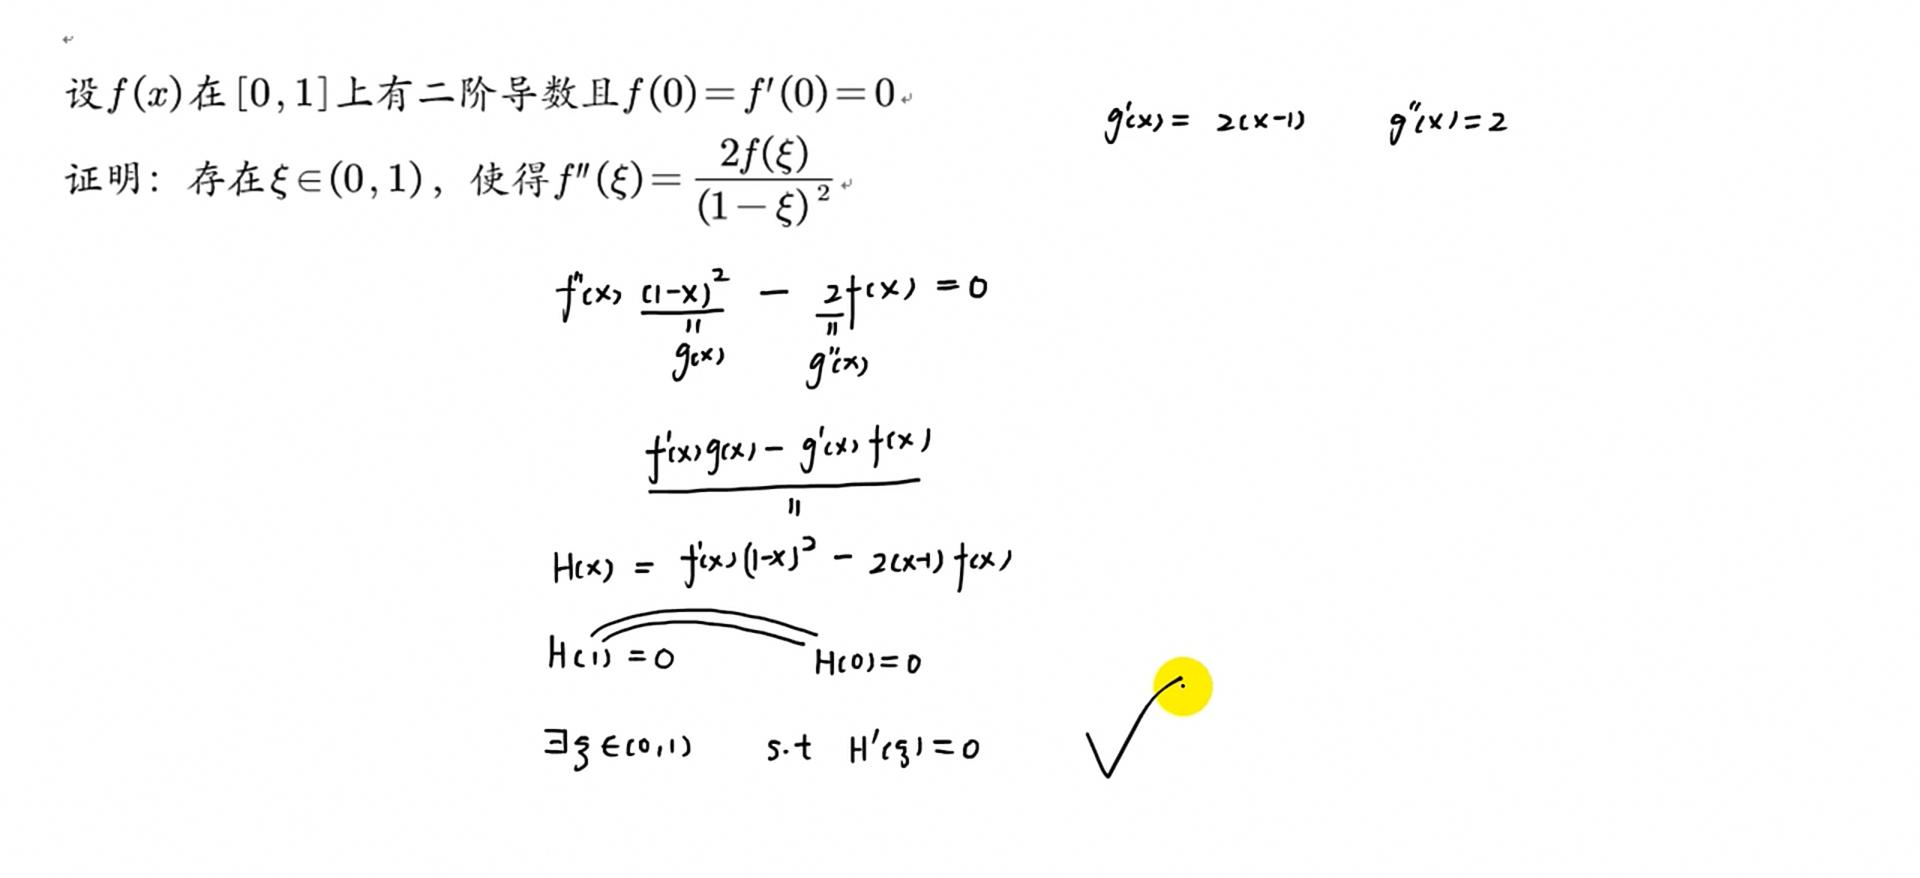 设f(x)在[0,1]上有二阶导数且f(0)=f′(0)=0
证明：存在ξ∈(0,1)，使得f″(ξ)=2f(ξ)/(1−ξ)²
g'(x) = 2(x-1) g''(x)=2
f''(x) (1-x)² - 2f(x) = 0
g(x) g''(x)
f'(x)g(x) - g'(x)f(x)
H(x) = f'(x)(1-x)² - 2(x-1)f(x)
H(1)=0 H(0)=0
∃ξ∈(0,1) s.t H'(ξ)=0